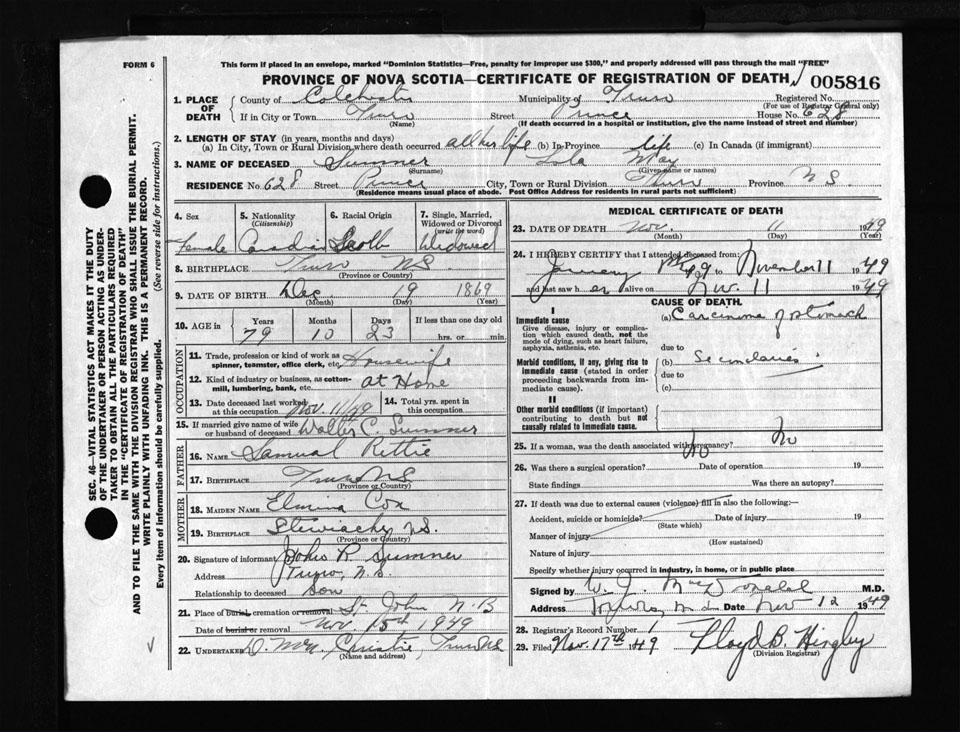 FORM 6
This form if placed in an envelope, marked "Dominion Statistics—Free, penalty for improper use $300," and properly addressed will pass through the mail "FREE"
PROVINCE OF NOVA SCOTIA—CERTIFICATE OF REGISTRATION OF DEATH
005816
1. PLACE OF DEATH County of Colchester Municipality of Truro Registered No.
(For use of Registrar General only)
If in City or Town Truro Street Prince House No. 628
(Name) (If death occurred in a hospital or institution, give the name instead of street and number)
2. LENGTH OF STAY (in years, months and days)
(a) In City, Town or Rural Division where death occurred all her life (b) In Province life (c) In Canada (if immigrant)
3. NAME OF DECEASED Sumner Lola May
(Surname) (Given name or names)
RESIDENCE No. 628 Street Prince City, Town or Rural Division Truro Province N.S.
(Residence means usual place of abode. Post Office Address for residents in rural parts not sufficient)
4. Sex 5. Nationality (Citizenship) 6. Racial Origin 7. Single, Married, Widowed or Divorced (write the word)
Female Canadian Scotch Widowed
8. BIRTHPLACE Truro N.S.
(Province or Country)
9. DATE OF BIRTH Dec 19 1869
(Month) (Day) (Year)
10. AGE in Years Months Days If less than one day old
79 10 23 hrs. or min.
OCCUPATION
11. Trade, profession or kind of work as spinner, teamster, office clerk, etc. Housewife
12. Kind of industry or business, as cotton-mill, lumbering, bank, etc. at Home
13. Date deceased last worked at this occupation Nov. 11/49 14. Total yrs. spent in this occupation
15. If married give name of wife or husband of deceased Walter C. Sumner
FATHER
16. NAME Samual Rettie
17. BIRTHPLACE Truro N.S.
(Province or Country)
MOTHER
18. MAIDEN NAME Elmina Cox
19. BIRTHPLACE Stewiacke N.S.
(Province or Country)
20. Signature of informant John R. Sumner
Address Truro, N.S.
Relationship to deceased Son
21. Place of burial cremation or removal St. John N.B
Date of burial or removal Nov. 15th 1949
22. UNDERTAKER Christie, Truro NS
(Name and address)
MEDICAL CERTIFICATE OF DEATH
23. DATE OF DEATH Nov. 11 1949
(Month) (Day) (Year)
24. I HEREBY CERTIFY that I attended deceased from:
January 1949 to November 11 1949
and last saw her alive on Nov. 11 1949
CAUSE OF DEATH
I
Immediate cause (a) Carcinoma of stomach
Give disease, injury or complication which caused death, not the mode of dying, such as heart failure, asphyxia, asthenia, etc.
due to
Morbid conditions, if any, giving rise to immediate cause (stated in order proceeding backwards from immediate cause).
(b) Secondaries
due to
(c)
II
Other morbid conditions (if important) contributing to death but not causally related to immediate cause.
25. If a woman, was the death associated with pregnancy? No
26. Was there a surgical operation? No Date of operation 19
State findings Was there an autopsy?
27. If death was due to external causes (violence) fill in also the following:—
Accident, suicide or homicide? Date of injury 19
(State which)
Manner of injury
(How sustained)
Nature of injury
Specify whether injury occurred in industry, in home, or in public place
Signed by W. J. MacDonald M.D.
Address Date Nov 12 1949
28. Registrar's Record Number 1
29. Filed Nov. 17th 49 Lloyd B. Hingley
(Division Registrar)
SEC. 46—VITAL STATISTICS ACT MAKES IT THE DUTY
OF THE UNDERTAKER OR PERSON ACTING AS UNDER-
TAKER TO OBTAIN ALL THE PARTICULARS REQUIRED
IN THE "CERTIFICATE OF REGISTRATION OF DEATH"
AND TO FILE THE SAME WITH THE DIVISION REGISTRAR WHO SHALL ISSUE THE BURIAL PERMIT.
WRITE PLAINLY WITH UNFADING INK. THIS IS A PERMANENT RECORD.
Every item of information should be carefully supplied. (See reverse side for instructions.)